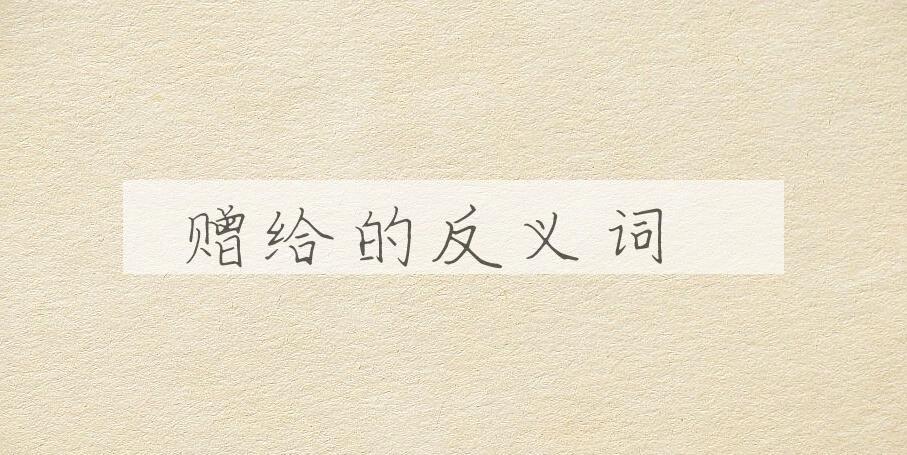 赠给的反义词